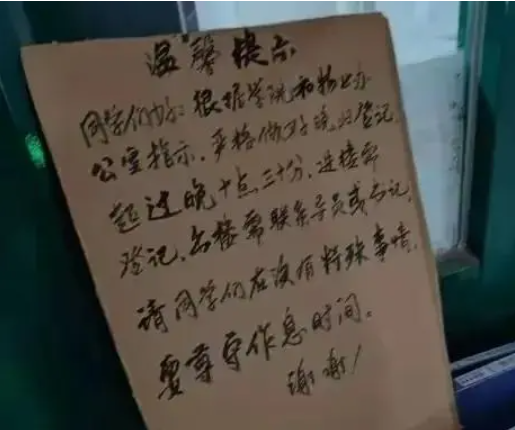 温馨提示
同学们好：根据学院和物业办
公室指示，严格做好晚归登记，
超过晚十点三十分，进楼需
登记、出楼需联系导员或书记，
请同学们在没有特殊事情，
要尊守作息时间。
谢谢！